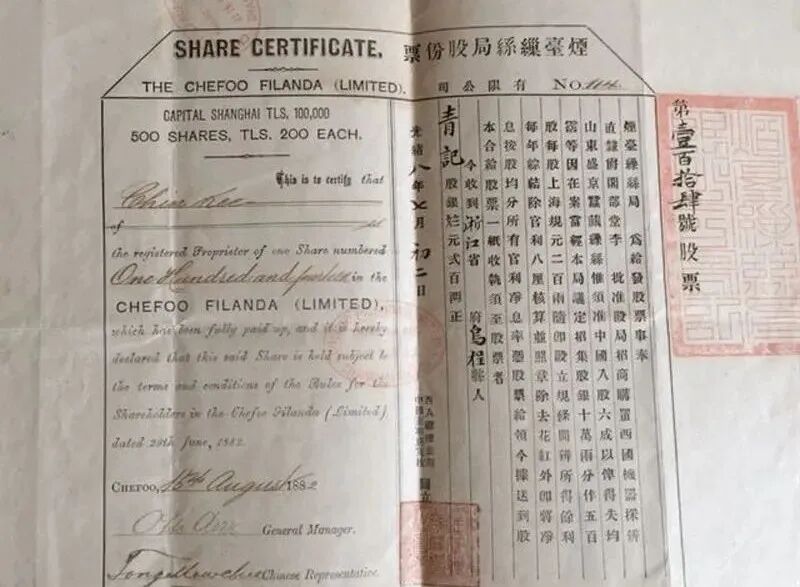 SHARE CERTIFICATE.
票份股局絲繅臺煙
THE CHEFOO FILANDA (LIMITED).
司公限有
No. 114.
CAPITAL SHANGHAI TLS, 100,000
500 SHARES, TLS. 200 EACH.
This is to certify that
Chin Kee
of
the registered Proprietor of one Share numbered
One Hundred and fourteen in the
CHEFOO FILANDA (LIMITED),
which has been fully paid up, and it is hereby
declared that this said Share is held subject to
the terms and conditions of the Rules for the
Shareholders in the Chefoo Filanda (Limited)
dated 29th June, 1882.
CHEFOO, 15th August 1882
General Manager.
Chinese Representative.
第壹百拾肆號股票
煙臺繅絲局 為給發股票事奉
直隸爵閣部堂李 批准股局招商購置西國機器採辦
山東盛京蠶繭繅絲惟須准中國入股六成以俾得失均
霑等因在案當經本局議定招集股銀十萬兩分作五百
股每股上海規元二百兩隨即設立規條開辦所得餘利
每年綜結除官利八厘核算並照章除去花紅外即將淨
息按股均分所有官利淨息率憑股票給領今據送到股
本合給股票一紙收執須至股票者
今收到浙江省 府烏程縣人
青記 股銀規元弍百兩正
光緒八年七月初二日